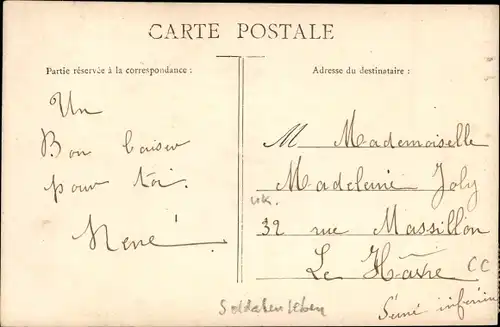 CARTE POSTALE
Partie réservée à la correspondance :
Un
Bon baiser
pour toi.
René
Adresse du destinataire :
M Mademoiselle
Madeleine Joly
uk.
32 rue Massillon
Le Havre
CC
Seine inférieure
Soldatenleben